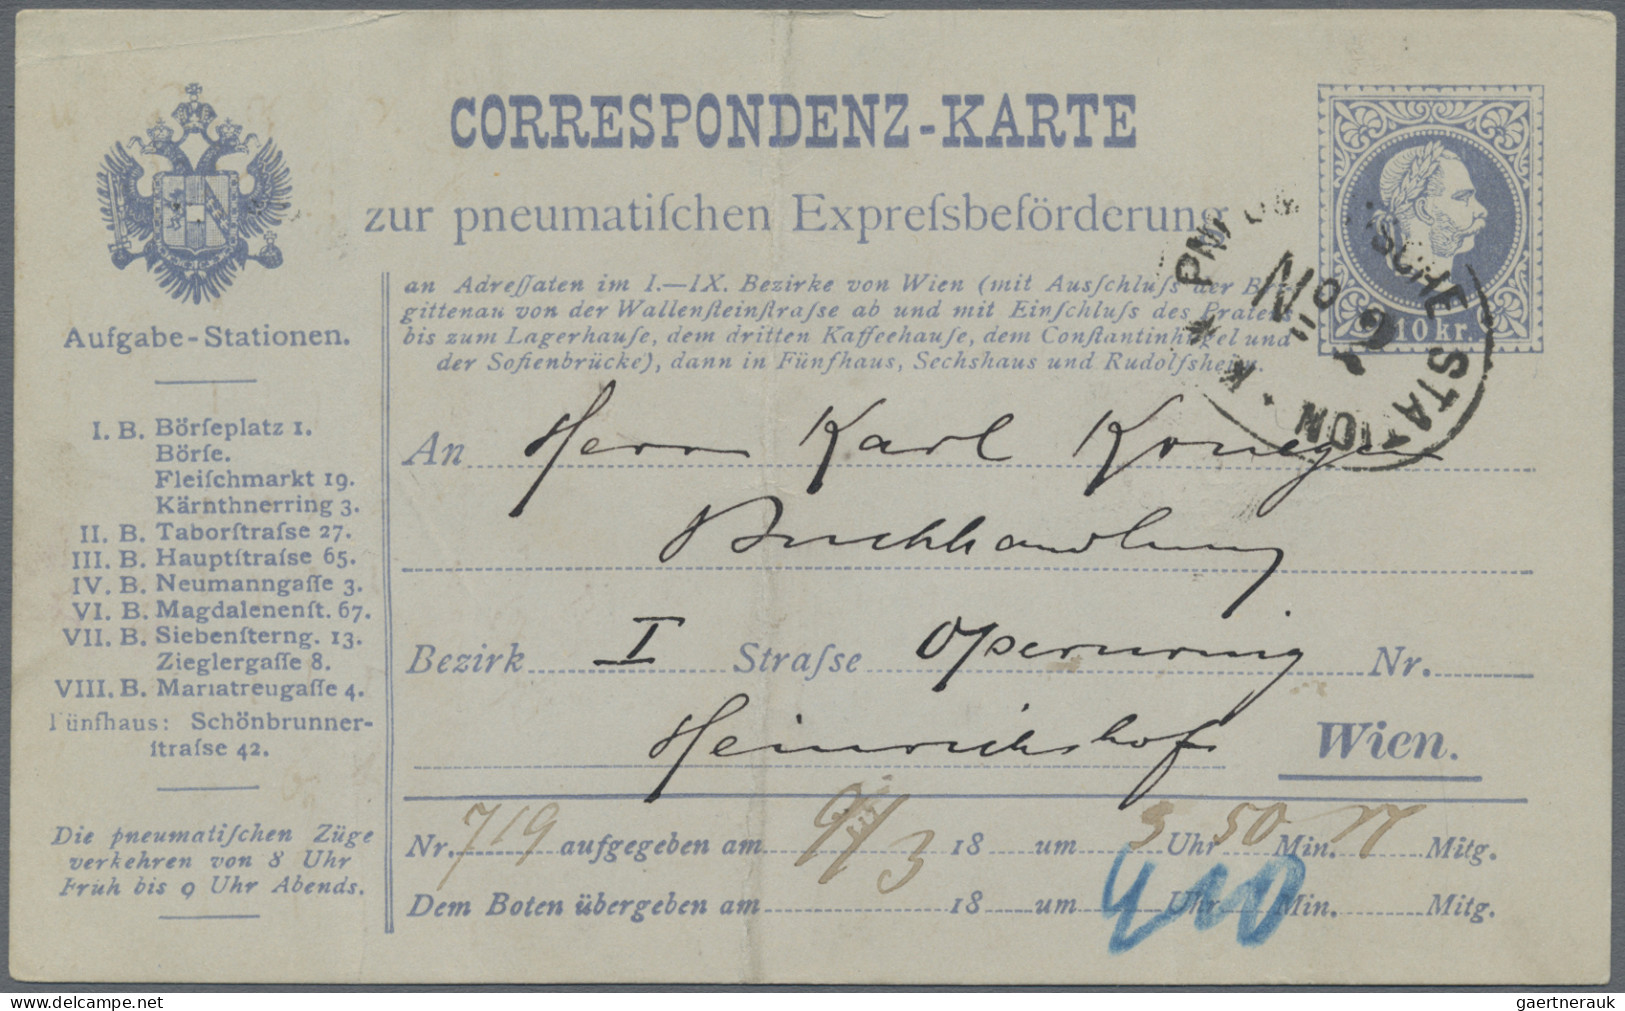 CORRESPONDENZ-KARTE
zur pneumatiſchen Expreſsbeförderung
an Adreſſaten im I.—IX. Bezirke von Wien (mit Ausſchluſs der
gittenau von der Wallenſteinſtraſse ab und mit Einſchluſs des Praters
bis zum Lagerhauſe, dem dritten Kaffeehauſe, dem Conſtantinhügel und
der Sofienbrücke), dann in Fünfhaus, Sechshaus und Rudolfsheim.
10 kr.
PNEUMATISCHE STATION
No
* K. *
Aufgabe-Stationen.
I. B. Börſeplatz 1.
Börſe.
Fleiſchmarkt 19.
Kärnthnerring 3.
II. B. Taborſtraſse 27.
III. B. Hauptſtraſse 65.
IV. B. Neumanngaſſe 3.
VI. B. Magdalenenſt. 67.
VII. B. Siebenſterng. 13.
Zieglergaſſe 8.
VIII. B. Mariatreugaſſe 4.
Fünfhaus: Schönbrunner-
ſtraſse 42.
Die pneumatiſchen Züge
verkehren von 8 Uhr
Früh bis 9 Uhr Abends.
An Herrn Karl Konegen
Buchhandlung
Bezirk I Straſse Opernring Nr.
Heinrichshof Wien.
Nr. 719 aufgegeben am 9/3 18 um 3 Uhr 50 Min. N Mitg.
Dem Boten übergeben am 18 um 4 Uhr 10 Min. Mitg.
© www.delcampe.net
gaertnerauk